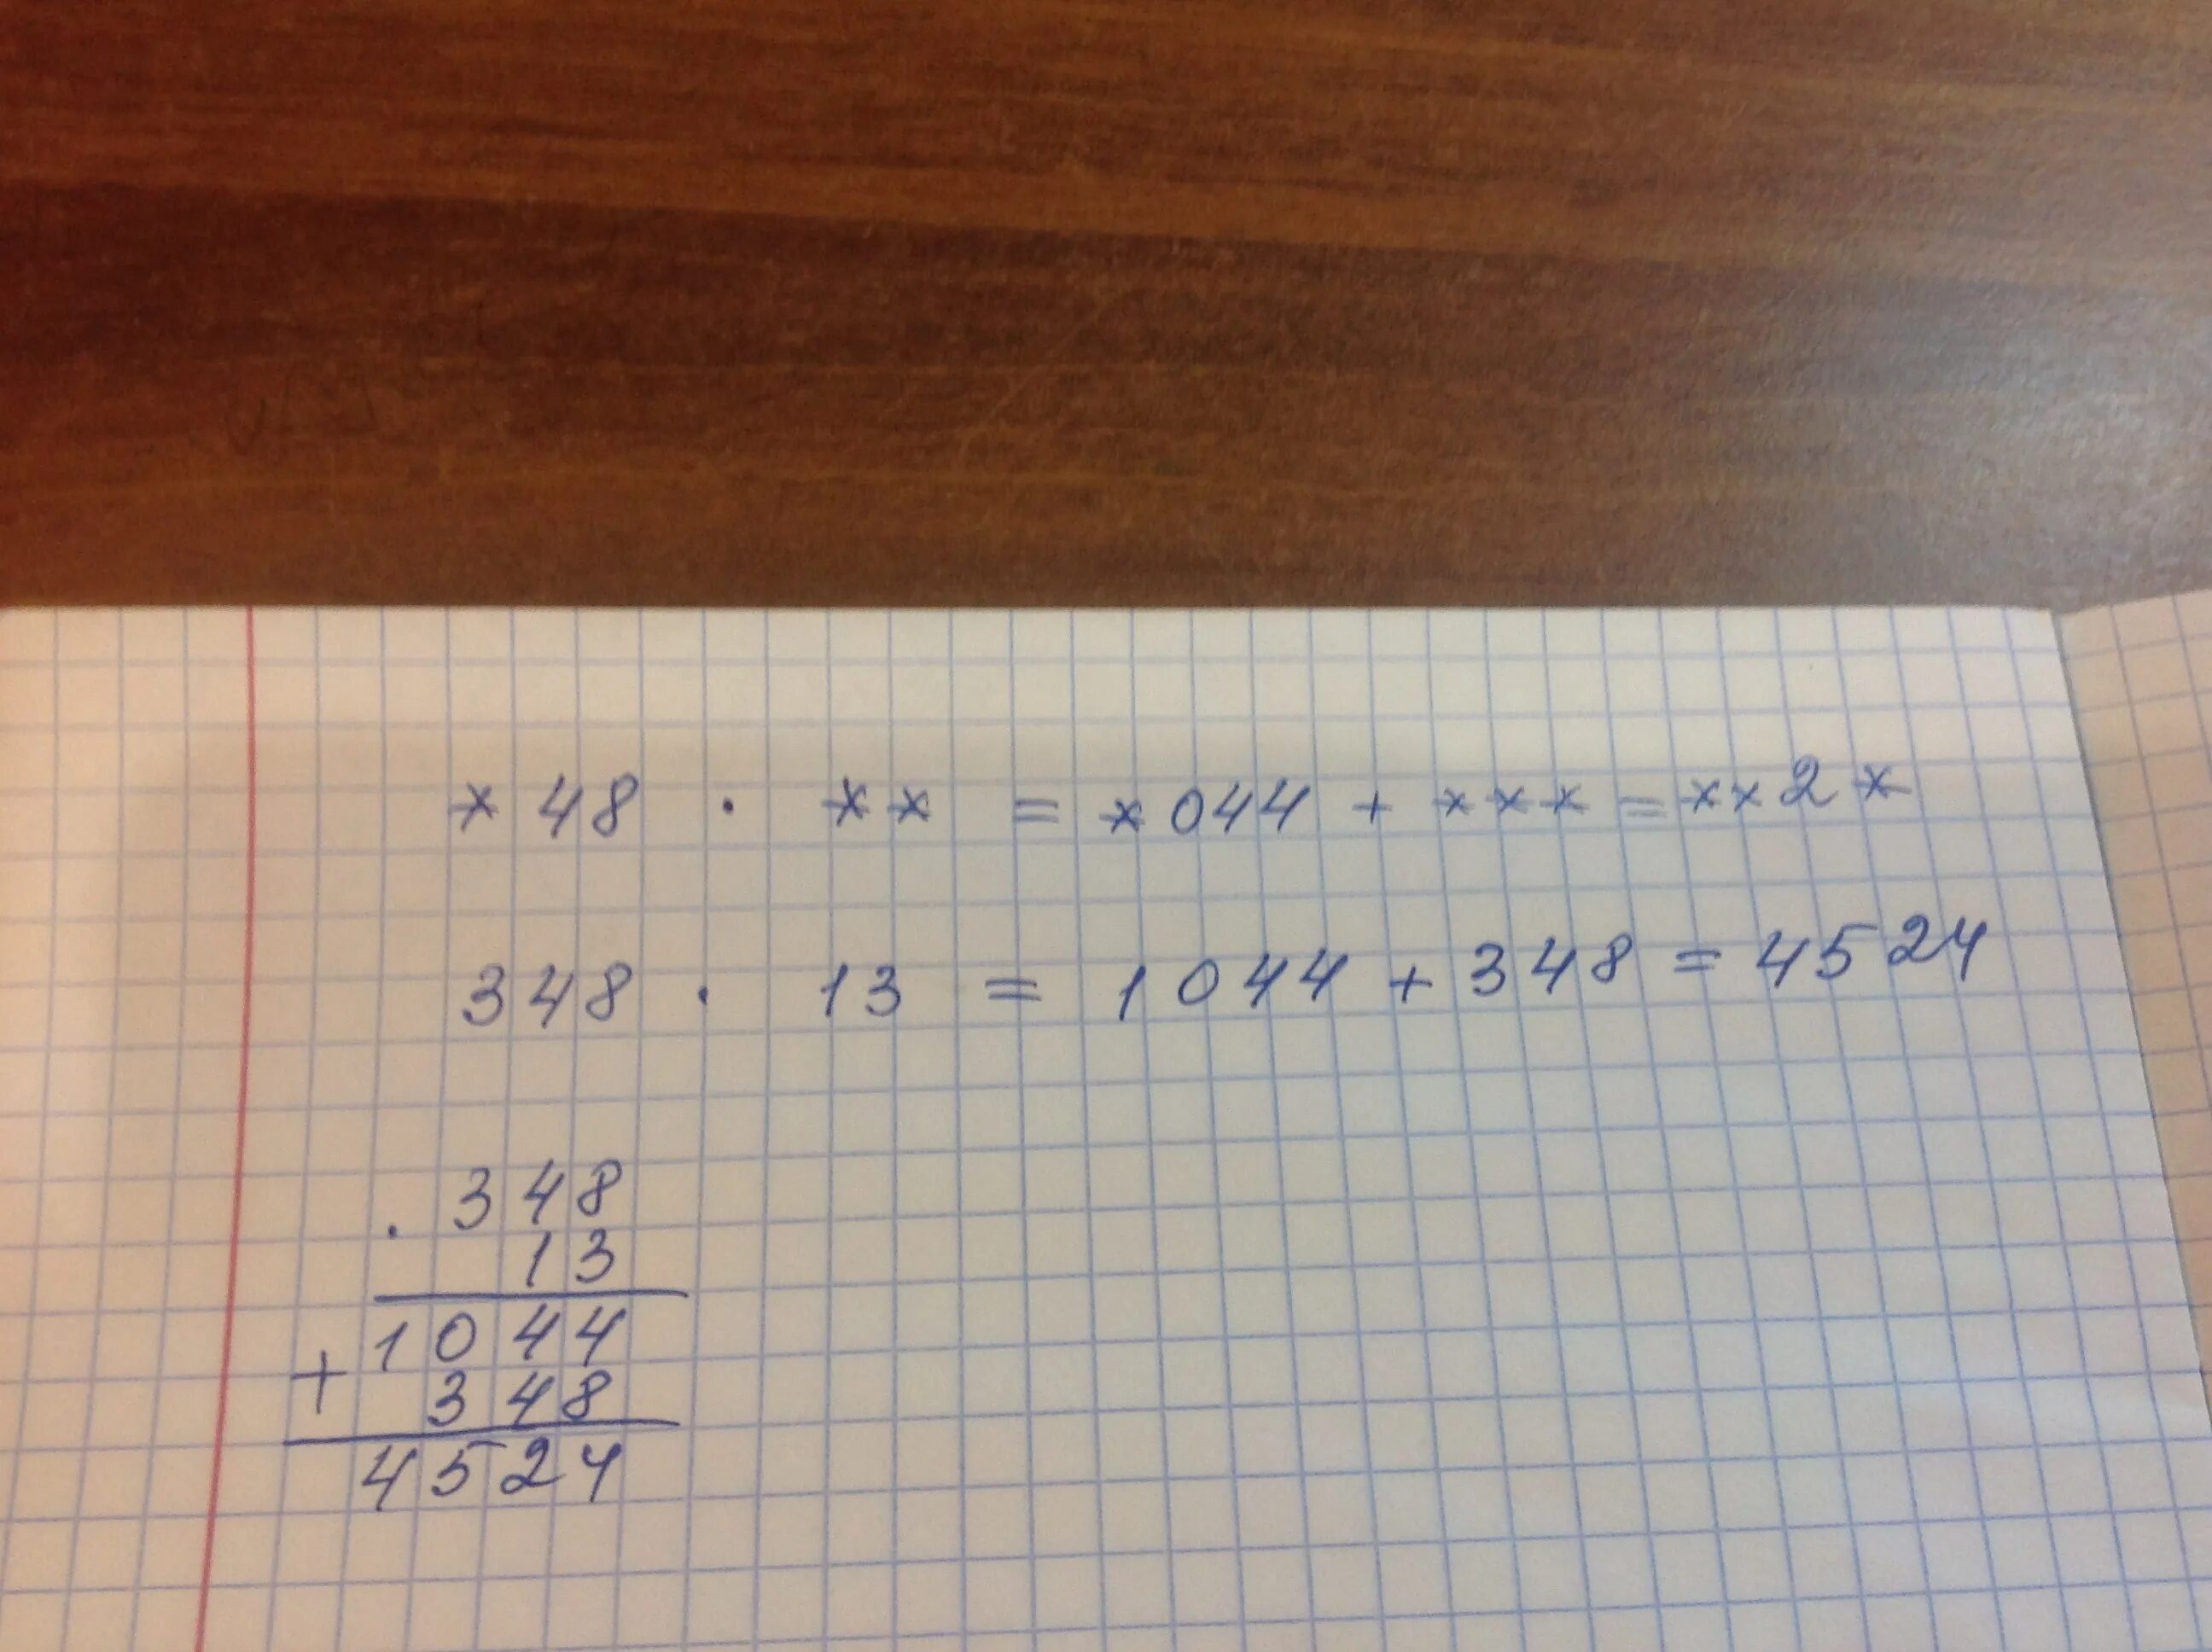 *48 · ** = *044 + *** = **2*
348 · 13 = 1044 + 348 = 4524
. 348
13
1044
+
348
4524